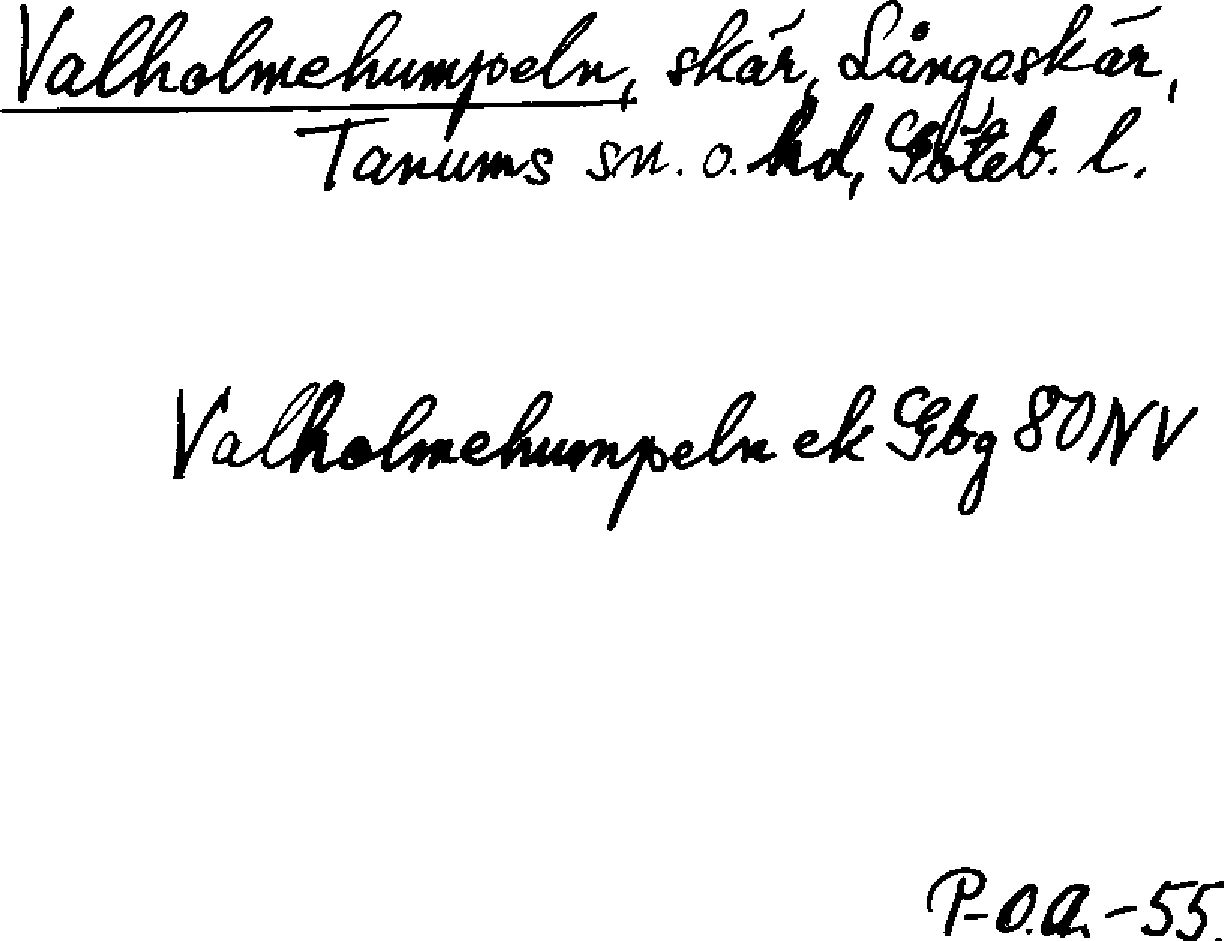 Valholmehumpeln, skär, Långeskär,
Tanums sn. o. hd, Göteb. l.
Valholmehumpeln ek Gbg 80 NV
P-O.A.-55.